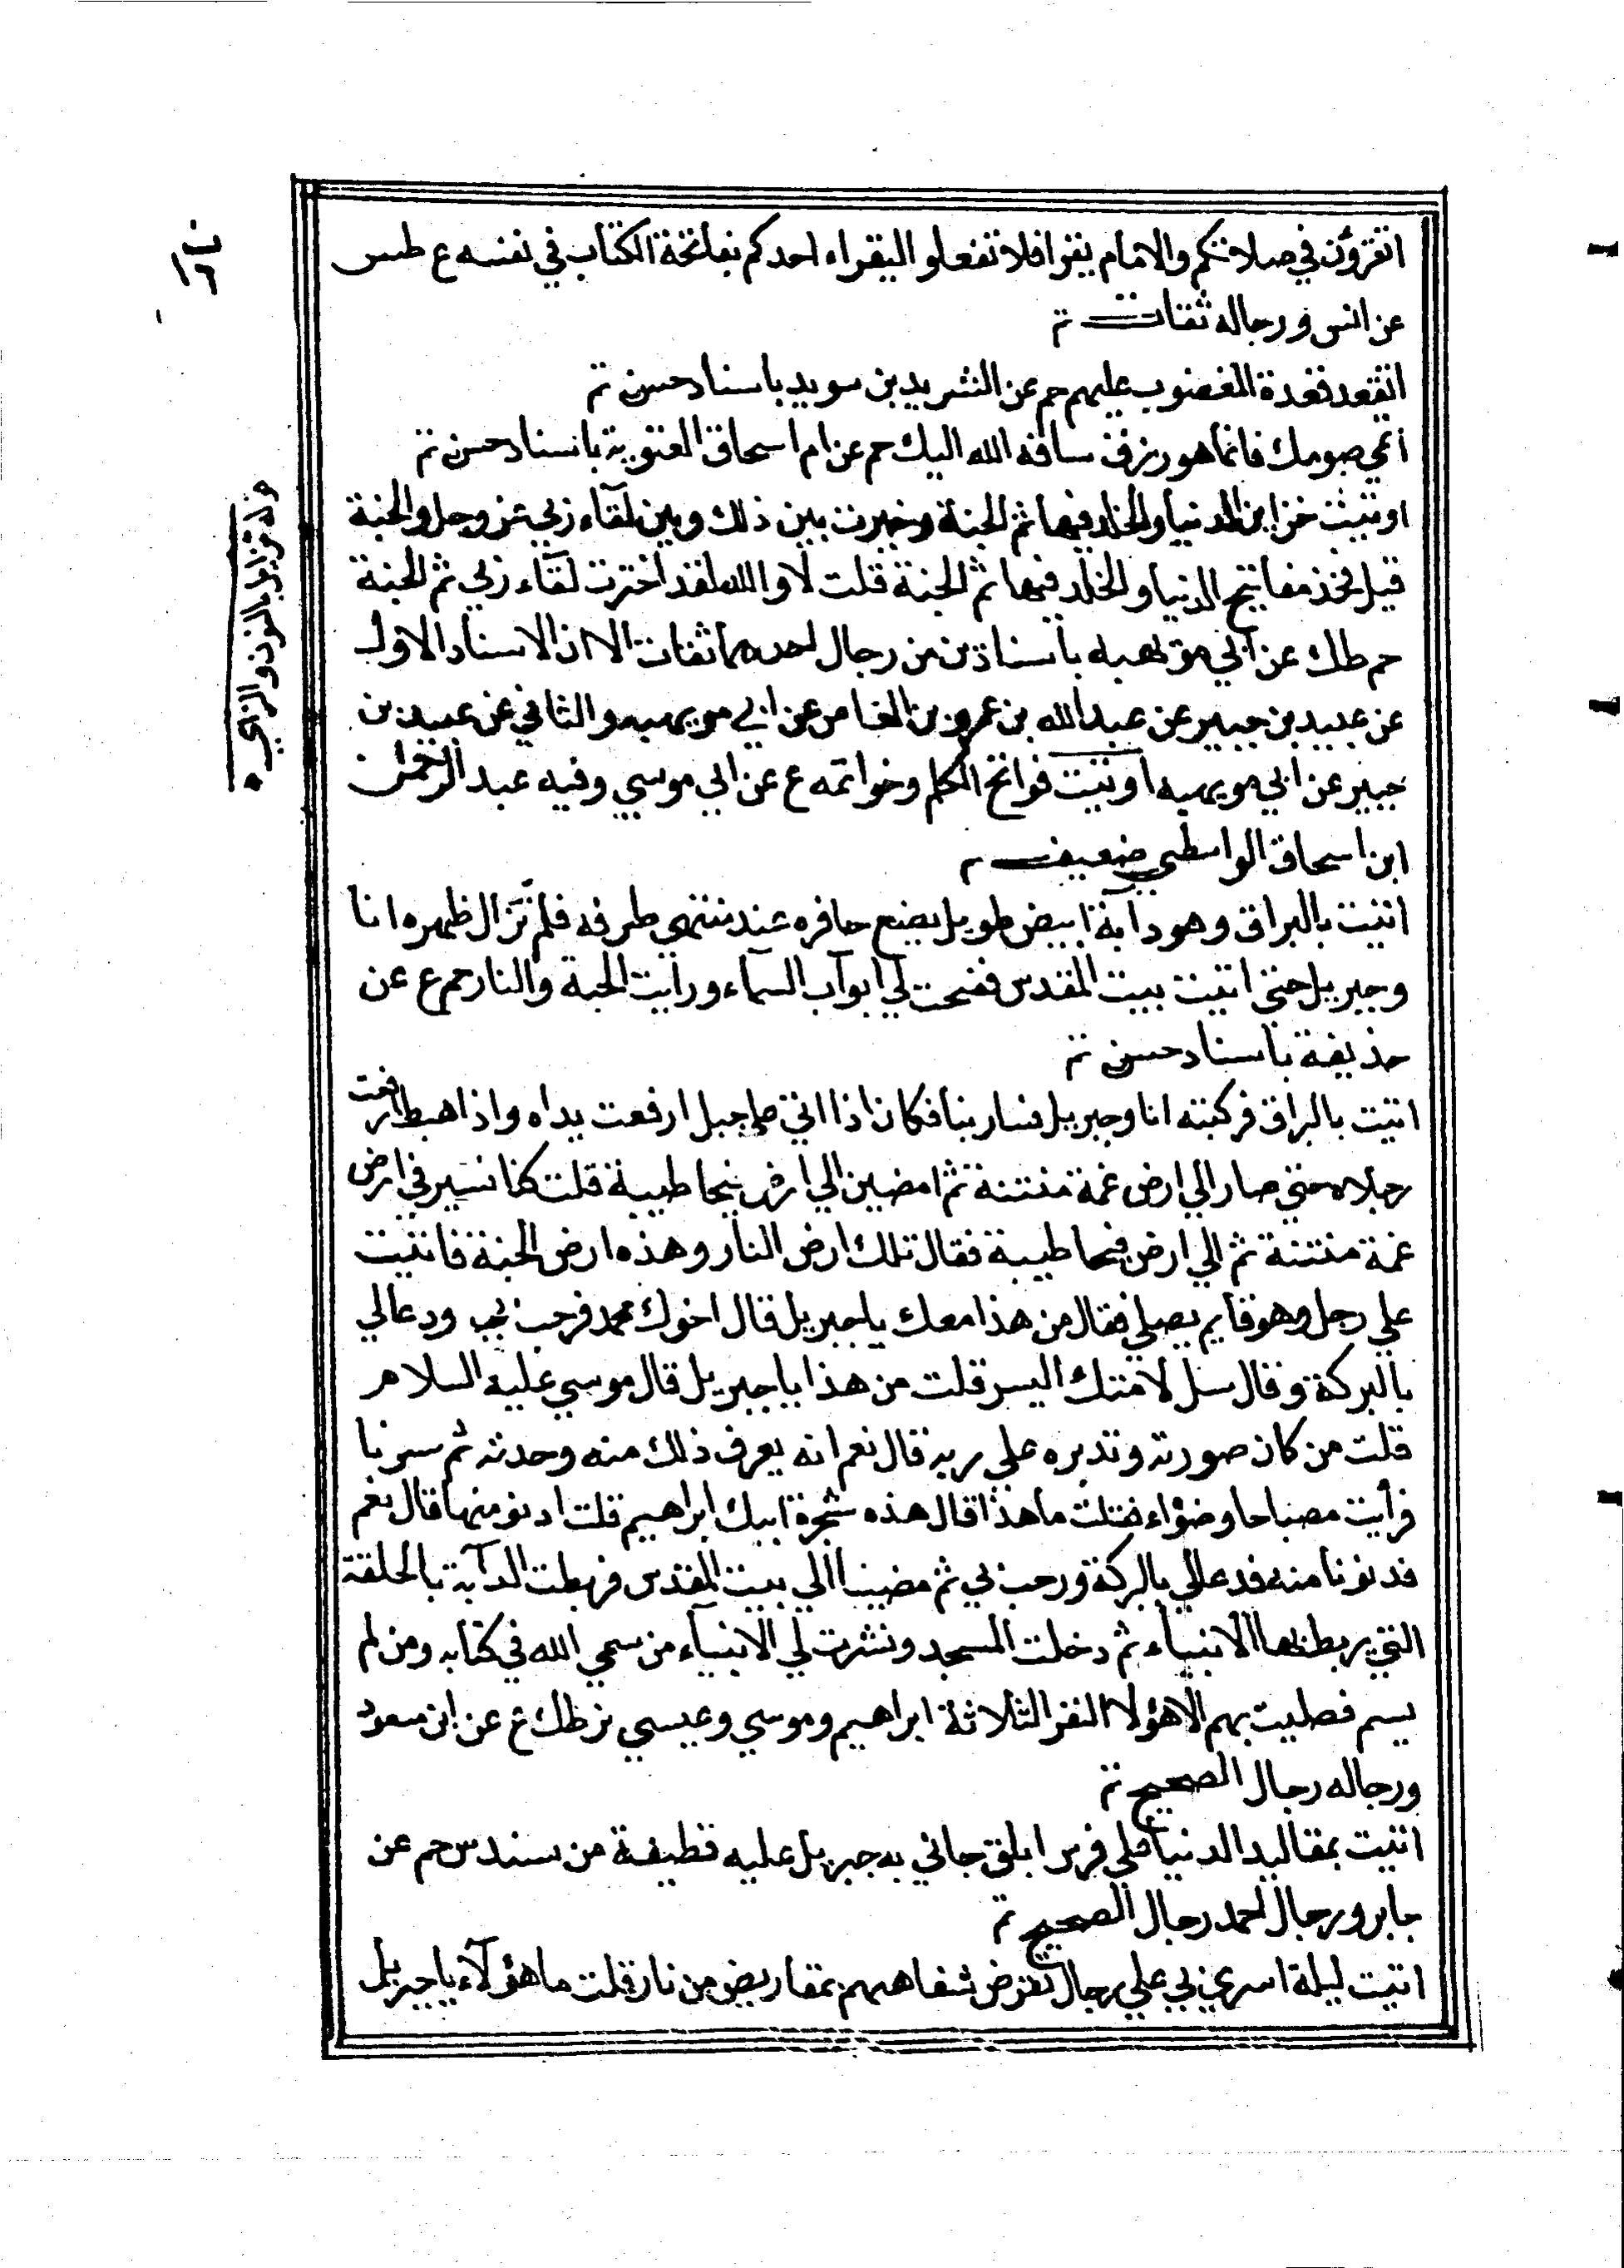 اتقرؤن في صلاتكم والامام يقرا فلا تفعلوا ليقراء احدكم بفاتحة الكتاب في نفسه ع طس
عن انس ورجاله ثقات
اتقعد قعدة المغضوب عليهم حم عن الشريد بن سويد باسناد حسن
اتمي صومك فانما هو رزق ساقه الله اليك حم عن ام اسحاق الغنوية باسناد حسن
اوتيت خزاين الدنيا والخلد فيها ثم الجنة وخيرت بين ذلك وبين لقآء ربي عز وجل والجنة
قيل فخذ مفاتيح الدنيا والخلد فيها ثم الجنة قلت لا والله لقد اخترت لقآء ربي ثم الجنة
حم طك عن ابي مويهبه باسنادين من رجال احدهما ثقات الا ان الاسناد الاول
عن عبيد بن جبير عن عبد الله بن عمرو بن العاص عن ابي مويهبه والثاني عن عبيد بن
جبير عن ابي مويهبه اوتيت فواتح الكلم وخواتمه ع عن ابي موسي وفيه عبد الرحمن
ابن اسحاق الواسطي ضعيف
اتيت بالبراق وهو دابة ابيض طويل يضع حافره عند منتهي طرفه فلم نزال ظهره انا
وجبريل حتي اتيت بيت المقدس ففتحت لي ابوآب السمآء ورايت الجنة والنار حم ع عن
حذيفة باسناد حسن
اتيت بالبراق فركبته انا وجبريل فسار بنا فكان اذا اتي علي جبل ارفعت يداه واذا هبط ارفعت
رجلاه حتي صار الي ارض غمة منتنة ثم امضين الي ارض فيحا طيبة قلت كنا نسير في ارض
غمة منتنة ثم الي ارض فيحا طيبة فقال تلك ارض النار وهذه ارض الجنة فاتيت
علي رجل وهو قايم يصلي فقال من هذا معك يا جبريل قال اخوك محمد فرحب بي ودعا لي
بالبركة وقال سل لامتك اليسر قلت من هذا يا جبريل قال موسي عليه السلام
قلت من كان صوته وتدبره علي ربه قال نعم انه يعرف ذلك منه وحدته ثم سرنا
فرأيت مصباحا وضؤاء فقلت ما هذا قال هذه شجرة ابيك ابراهيم قلت ادنو منها قال نعم
فدنونا منه فدعا لي بالبركة ورحب بي ثم مضينا الي بيت المقدس فربطت الدآبة بالحلقة
التي يربط بها الانبياء ثم دخلت المسجد ونشرت لي الانبيآء من سمي الله في كتابه ومن لم
يسم فصليت بهم الا هؤلا النفر الثلاثة ابراهيم وموسي وعيسي بز طك ع عن ابن مسعود
ورجاله رجال الصحيح
اتيت بمقاليد الدنيا علي فرس ابلق جاني به جبريل عليه قطيفة من سندس حم عن
جابر ورجال احمد رجال الصحيح
اتيت ليلة اسري بي علي رجال تقرض شفاههم بمقاريض من نار قلت ما هؤلآء يا جبريل